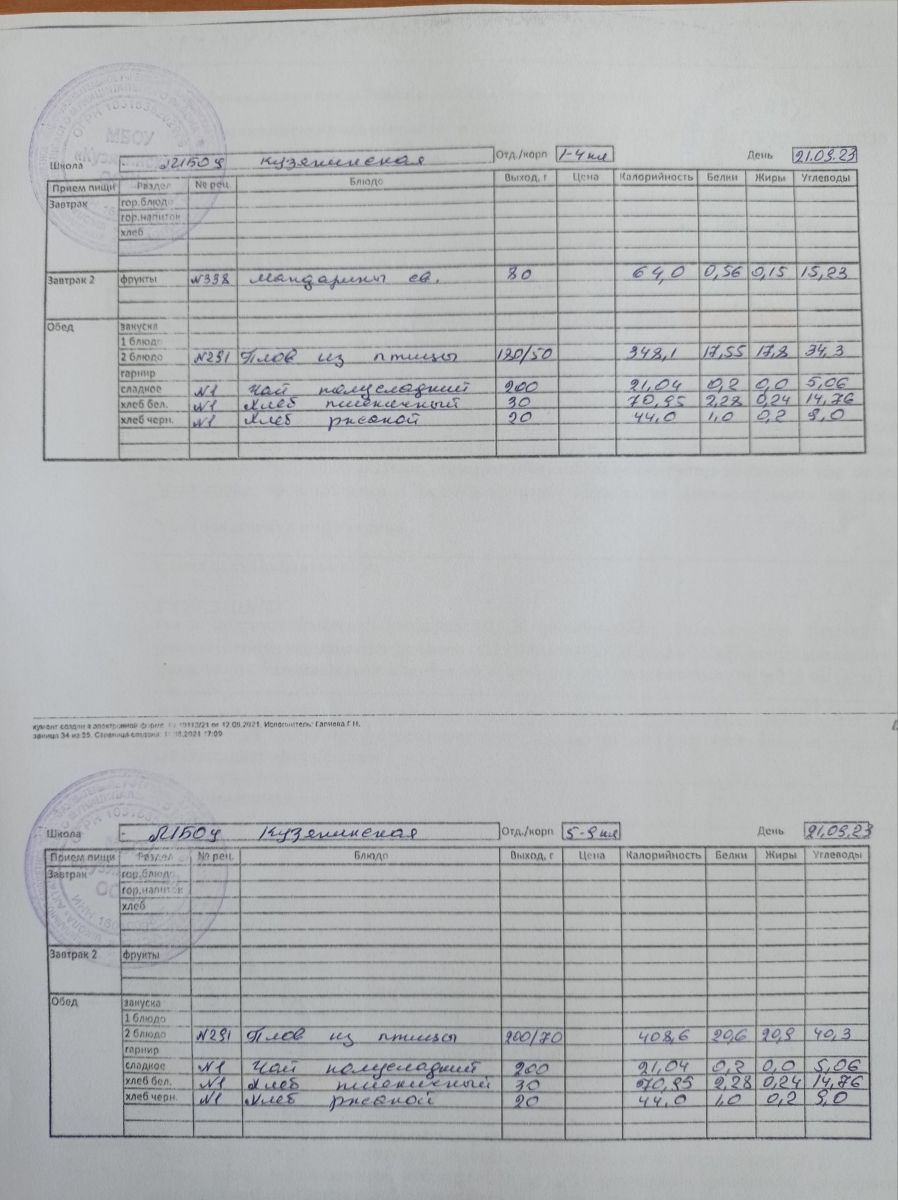 МБОУ
Школа - МБОУ Кузякинская Отд./корп 1-4 кл День 21.09.23
Прием пищи Раздел № рец. Блюдо Выход, г Цена Калорийность Белки Жиры Углеводы
Завтрак гор.блюдо
гор.напиток
хлеб
Завтрак 2 фрукты №338 Мандарины св. 80 64,0 0,56 0,15 15,23
Обед закуска
1 блюдо
2 блюдо №291 Плов из птицы 180/50 348,1 17,55 17,8 34,3
гарнир
сладкое №1 Чай полусладкий 200 21,04 0,2 0,0 5,06
хлеб бел. №1 Хлеб пшеничный 30 70,95 2,28 0,24 14,76
хлеб черн. №1 Хлеб ржаной 20 44,0 1,0 0,2 9,0
кумент создан в электронной форме. от 12.08.2021. Исполнитель: Галиева Г.Н.
аница 34 из 35. Страница создана: 17:09
Школа - МБОУ Кузякинская Отд./корп 5-9 кл День 21.09.23
Прием пищи Раздел № рец. Блюдо Выход, г Цена Калорийность Белки Жиры Углеводы
Завтрак гор.блюдо
гор.напиток
хлеб
Завтрак 2 фрукты
Обед закуска
1 блюдо
2 блюдо №291 Плов из птицы 200/70 408,6 20,6 20,9 40,3
гарнир
сладкое №1 Чай полусладкий 200 21,04 0,2 0,0 5,06
хлеб бел. №1 Хлеб пшеничный 30 70,95 2,28 0,24 14,76
хлеб черн. №1 Хлеб ржаной 20 44,0 1,0 0,2 9,0